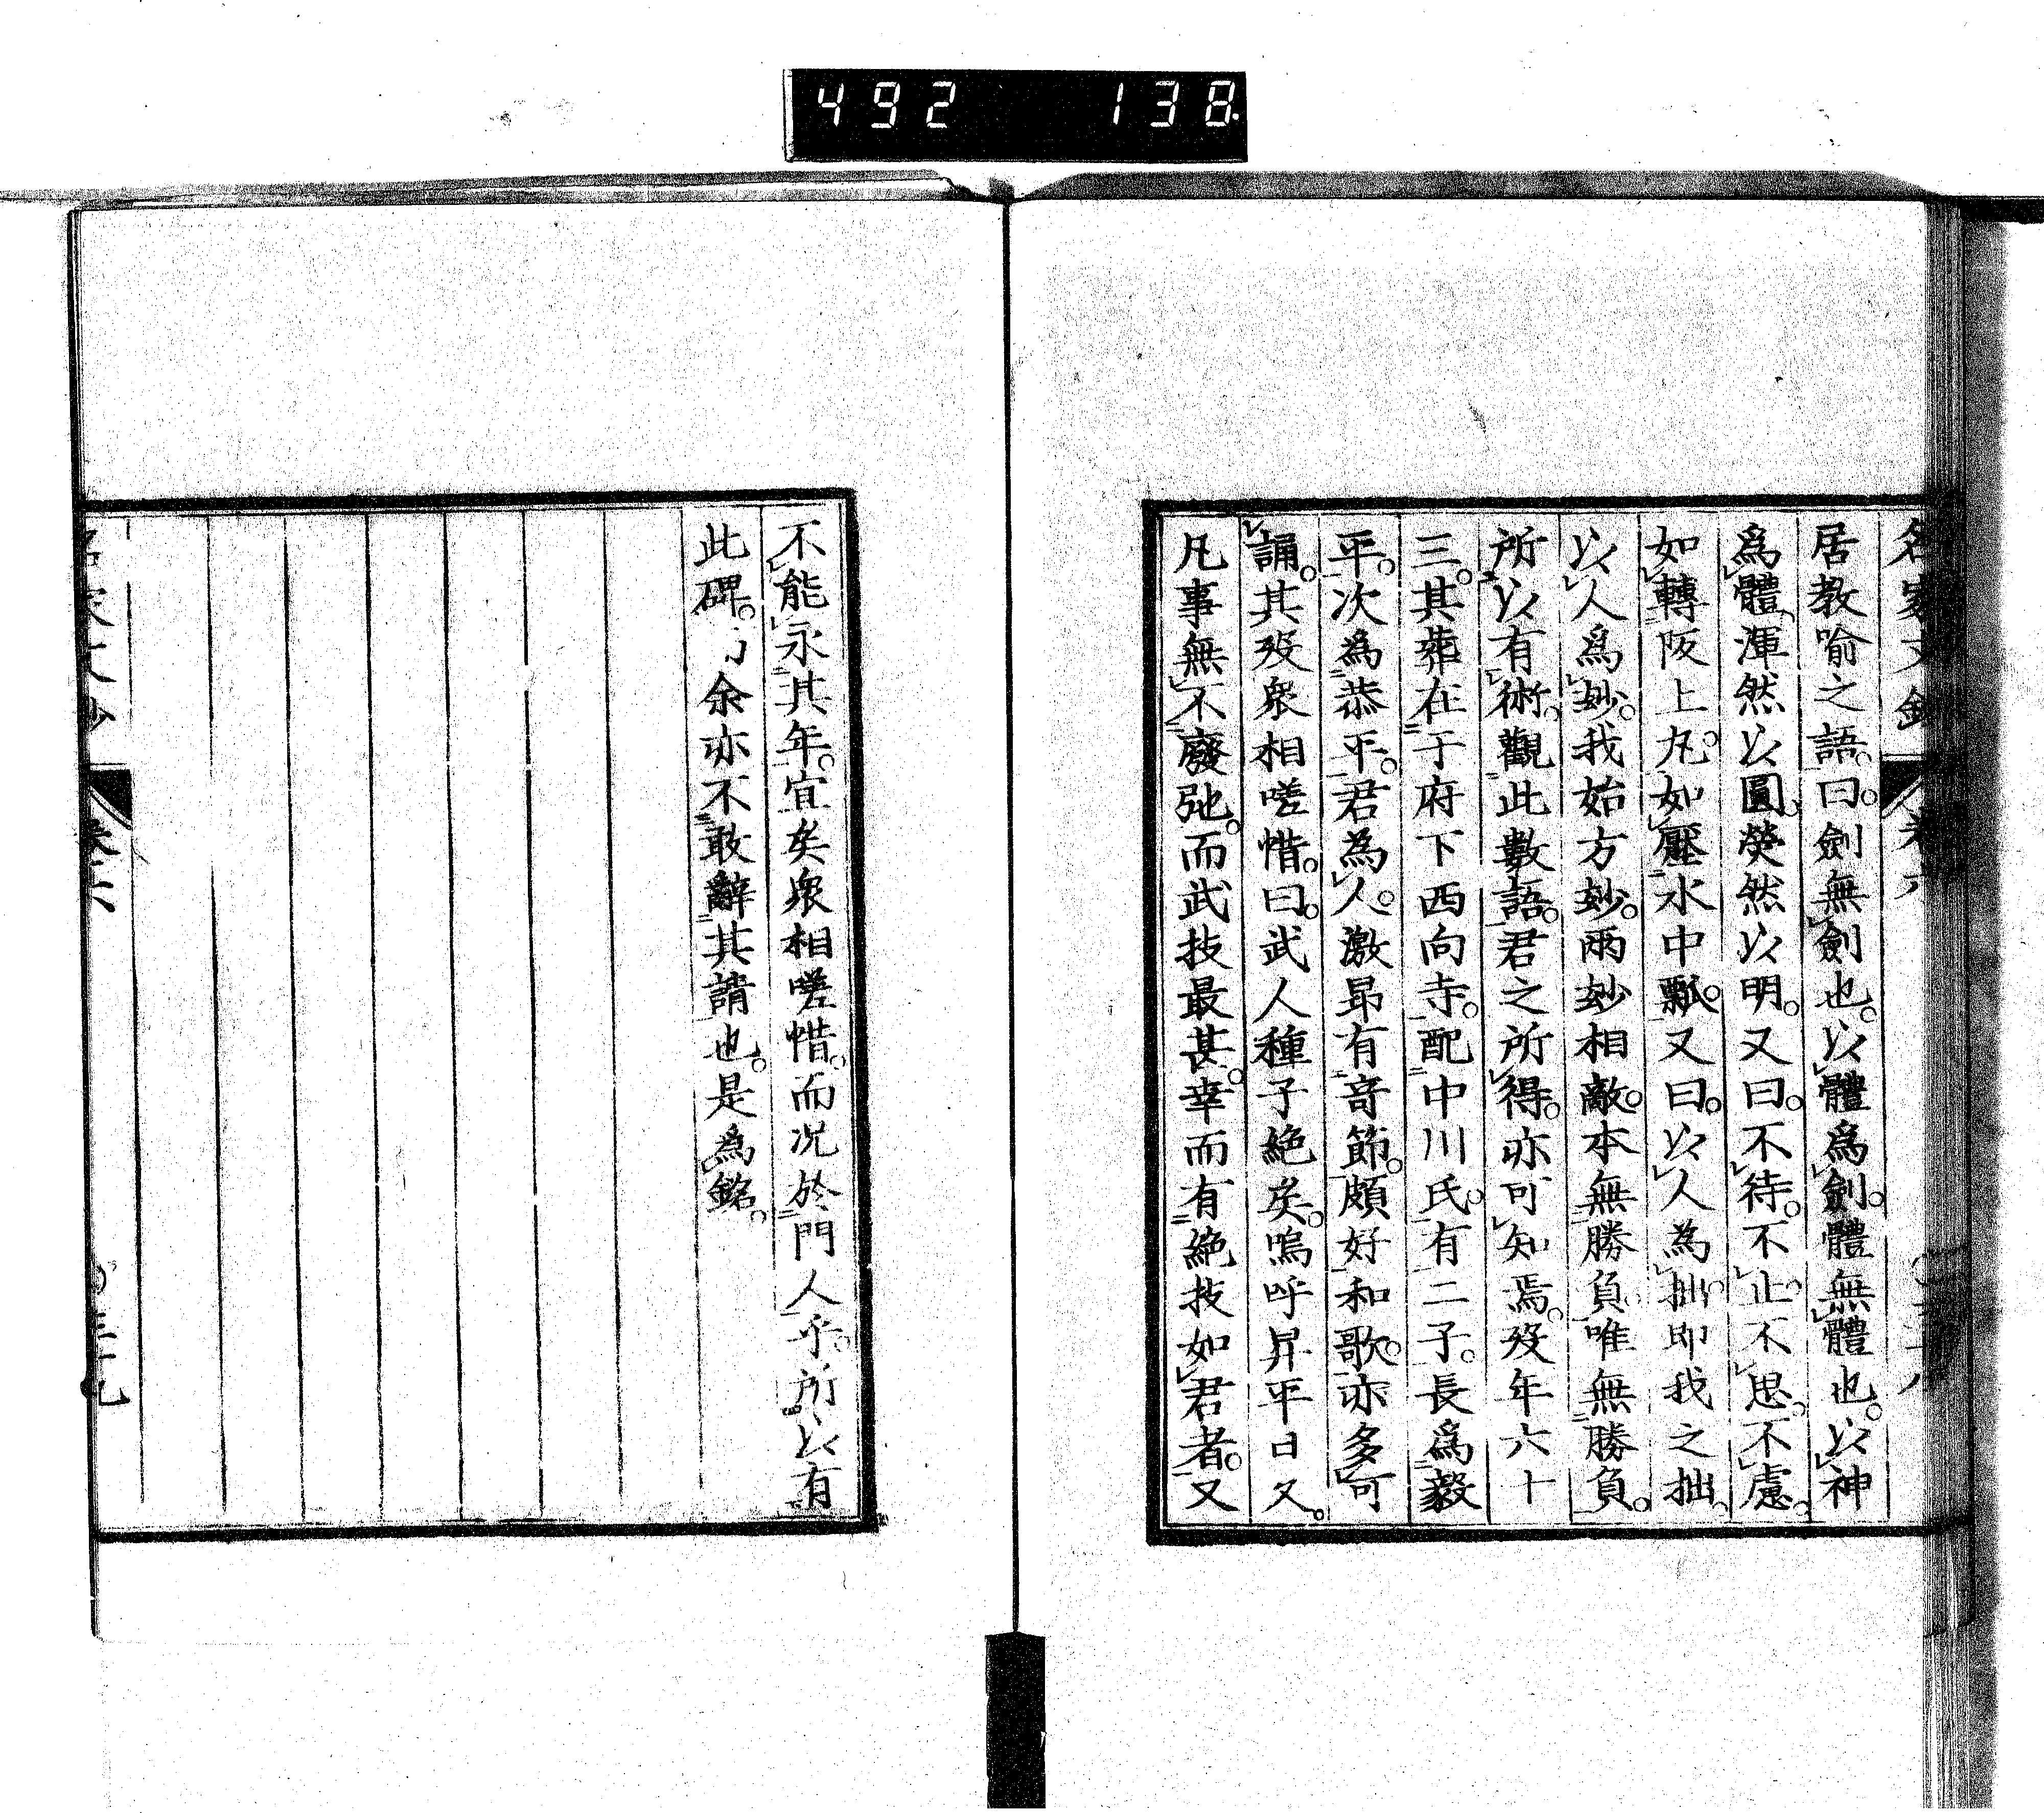 492 138
名家文鈔 卷六
居教喻之語。曰。劍無劍也。以體爲劍。體無體也。以神
爲體。渾然以圓。熒然以明。又曰。不待。不止。不思。不慮。
如轉阪上丸。如壓水中瓢。又曰。以人為拙。即我之拙。
以人爲妙。我始方妙。兩妙相敵。本無勝負。唯無勝負。
所以有術。觀此數語。君之所得。亦可知焉。歿年六十
三。其葬在于府下西向寺。配中川氏。有二子。長爲毅
平。次為恭平。君為人。激昂有奇節。頗好和歌。亦多可
誦。其歿衆相嗟惜。曰。武人種子絶矣。嗚呼昇平日久。
凡事無不廢弛。而武技最甚。幸而有絶技如君者。又
不能永其年。宜矣衆相嗟惜。而況於門人乎。所以有
此碑。而余亦不敢辭其請也。是爲銘。
名家文鈔 卷六 三十九